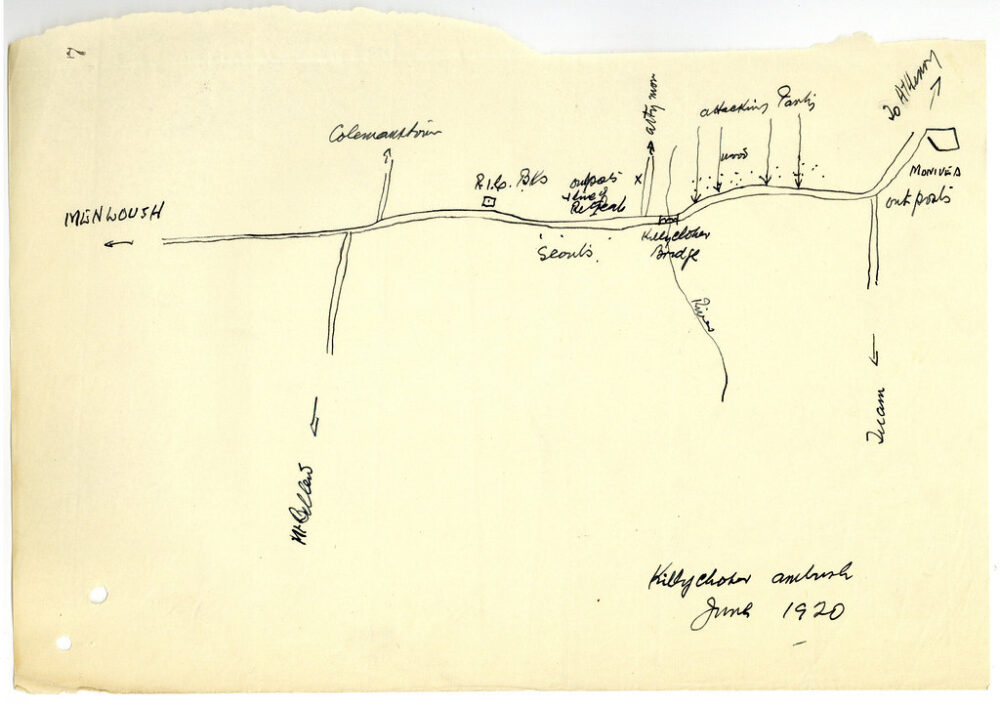 7
To AtHenry
Colemanstown
attacking Party
wood
R.I.C. Bks
outposts
+ line of
Retreat
x
MONIVEA
outposts
MENLOUSH
Killyclogher
Bridge
'Scouts'.
River
Tuam
Mt Bellew
Killyclogher ambush
June 1920